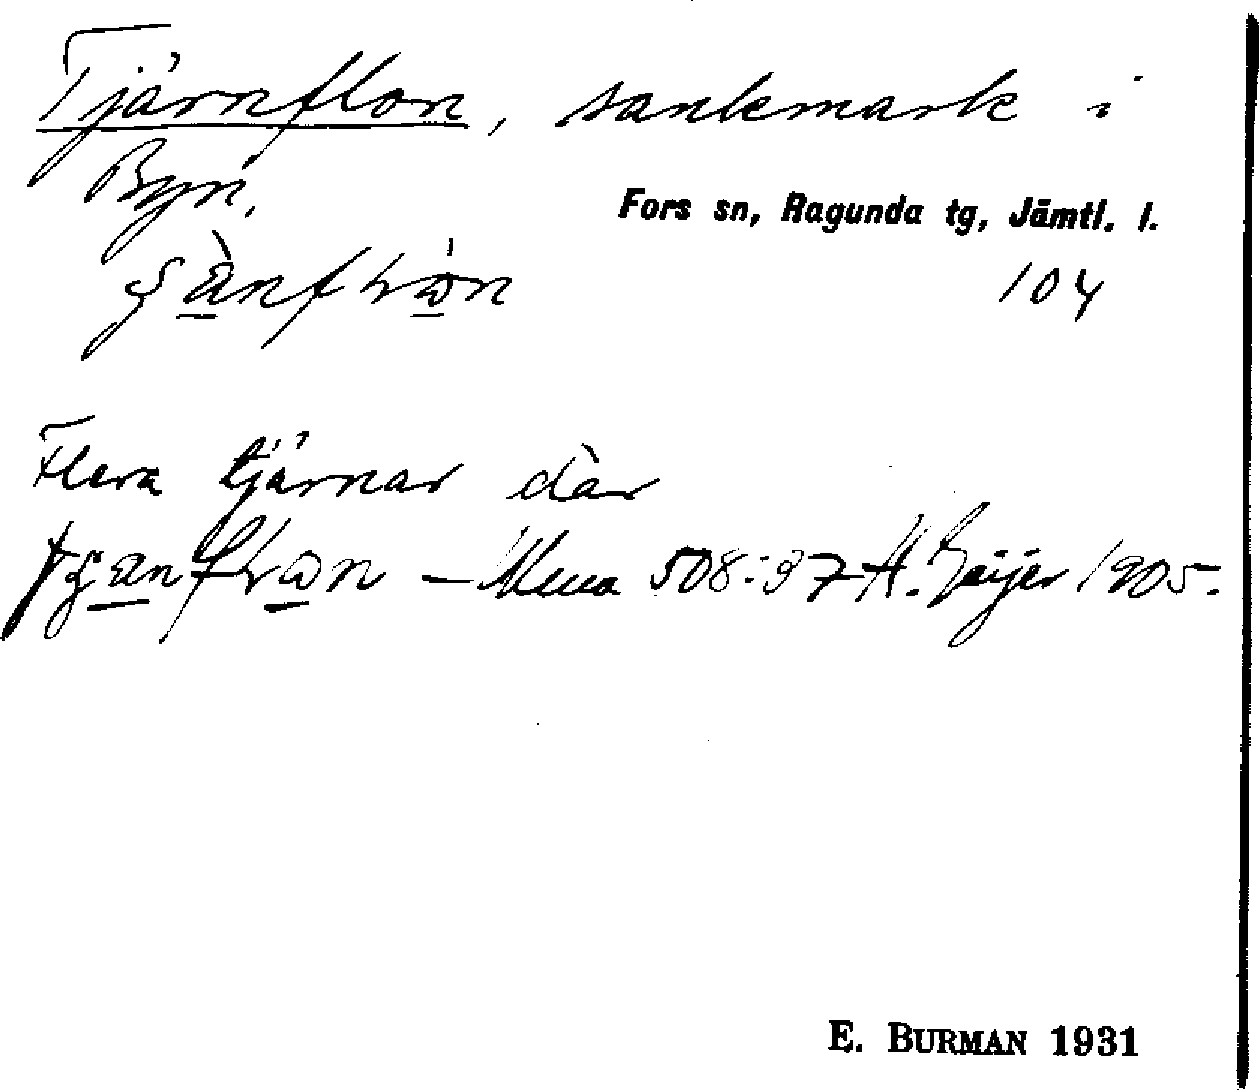 Tjärnflon, sankmark i
Byn.
Fors sn, Ragunda tg, Jämtl. l.
104
Flera tjärnar där
508:37 A. Geijer 1905.
E. BURMAN 1931